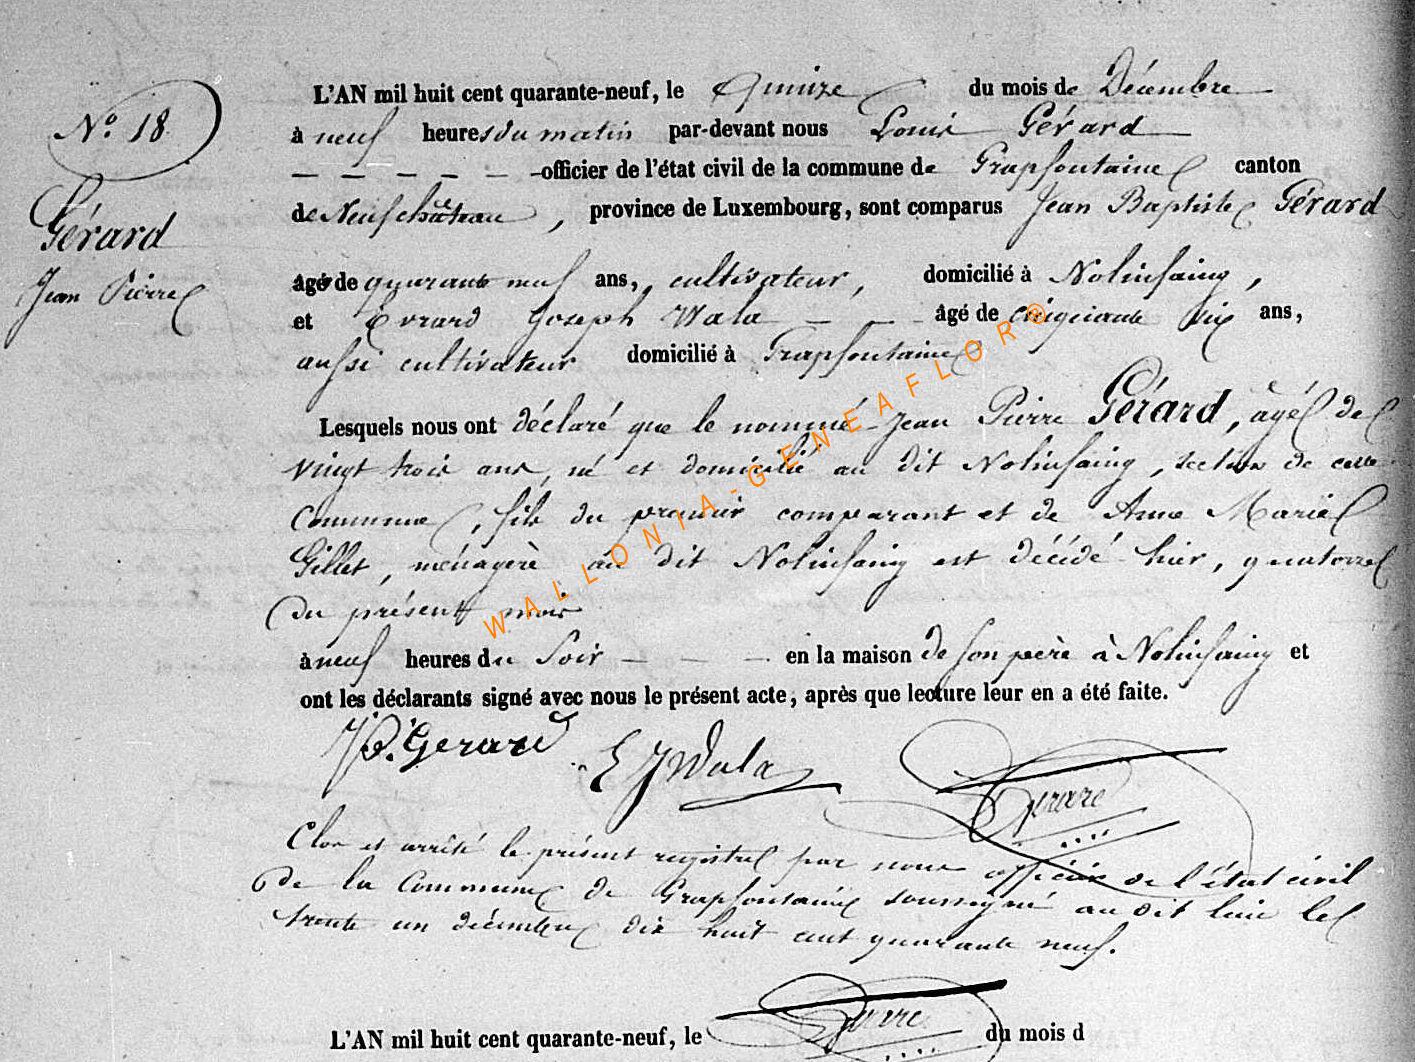 L'AN mil huit cent quarante-neuf, le quinze du mois de Décembre
N.° 18
à neuf heures du matin par-devant nous Louis Gérard
officier de l'état civil de la commune de Grapfontaine canton
Gérard
de Neufchâteau, province de Luxembourg, sont comparus Jean Baptiste Gérard
Jean Pierre
âgé de quarante neuf ans, cultivateur, domicilié à Nolinfaing,
et Evrard Joseph Wala âgé de cinquante six ans,
aussi cultivateur domicilié à Grapfontaine
Lesquels nous ont déclaré que le nommé Jean Pierre Gérard, âgé de
vingt trois ans, né et domicilié au dit Nolinfaing, section de cette
commune, fils du premier comparant et de Anne Marie
Gillet, ménagère au dit Nolinfaing est décédé hier, quatorze
du présent mois
à neuf heures du soir en la maison de son père à Nolinfaing et
ont les déclarants signé avec nous le présent acte, après que lecture leur en a été faite.
JB. Gerard E J Wala Gérard
Clos et arrêté le présent registre par nous officier de l'état civil
de la Commune de Grapfontaine soussigné au dit lieu le
trente un décembre dix huit cent quarante neuf.
Gérard
L'AN mil huit cent quarante-neuf, le du mois d
WALLONIA-GENEAFLOR®